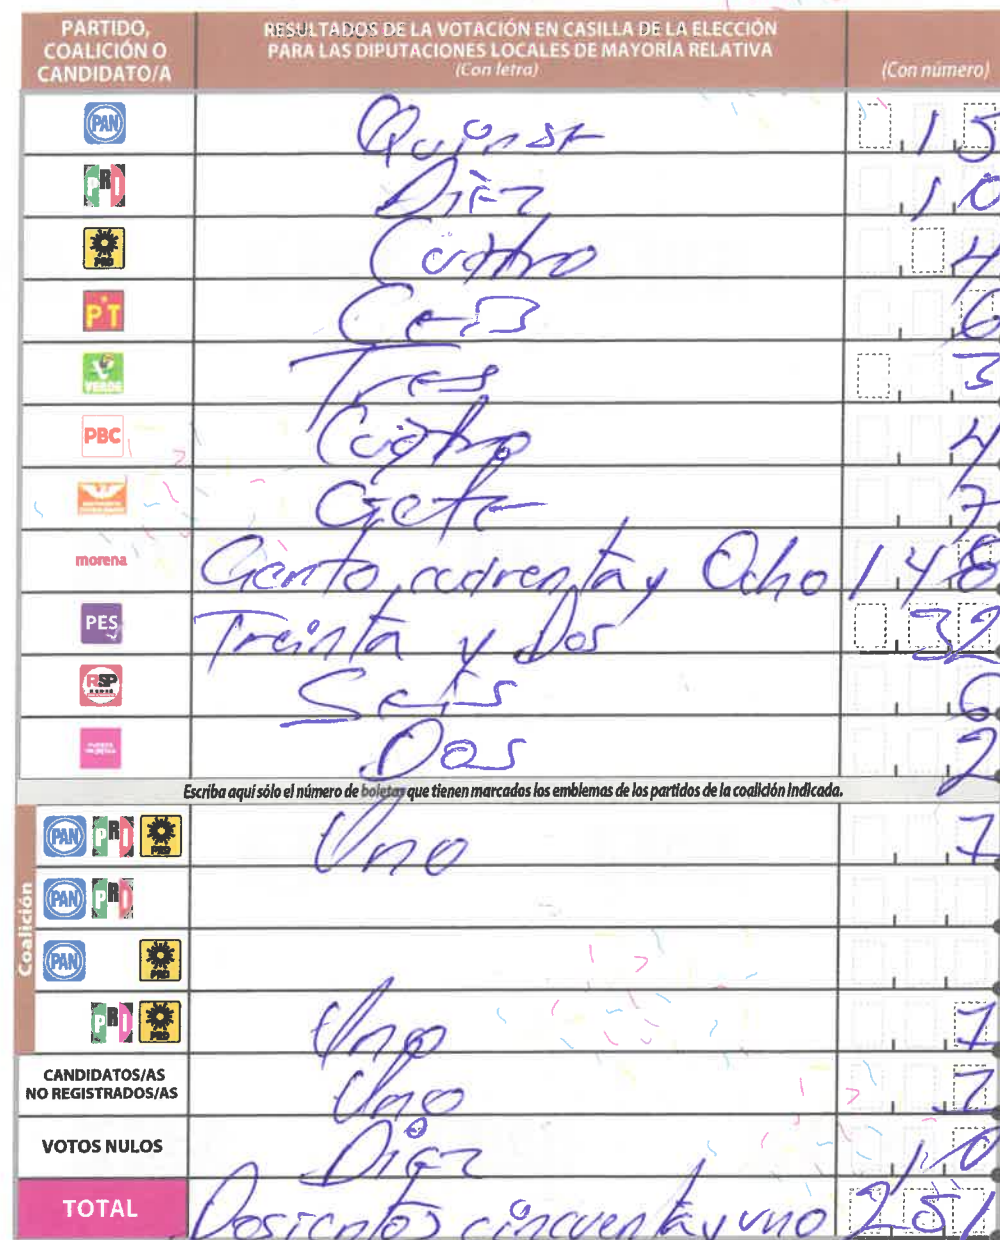 PARTIDO, COALICIÓN O CANDIDATO/A
RESULTADOS DE LA VOTACIÓN EN CASILLA DE LA ELECCIÓN
PARA LAS DIPUTACIONES LOCALES DE MAYORÍA RELATIVA
(Con letra)
(Con número)
PAN Quinse 15
PRI Diez 10
PRD Cuatro 4
PT Ceis 6
VERDE Tres 3
PBC Cuatro 4
Ciete 7
morena Ciento cuarenta y Ocho 148
PES Treinta y Dos 32
RSP Seis 6
Dos 2
Escriba aquí sólo el número de boletas que tienen marcados los emblemas de los partidos de la coalición indicada.
Coalición
PAN PRI PRD Uno 1
PAN PRI
PAN PRD
PRI PRD Uno 1
CANDIDATOS/AS NO REGISTRADOS/AS Uno 1
VOTOS NULOS Diez 10
TOTAL Dosientos cincuenta y uno 251